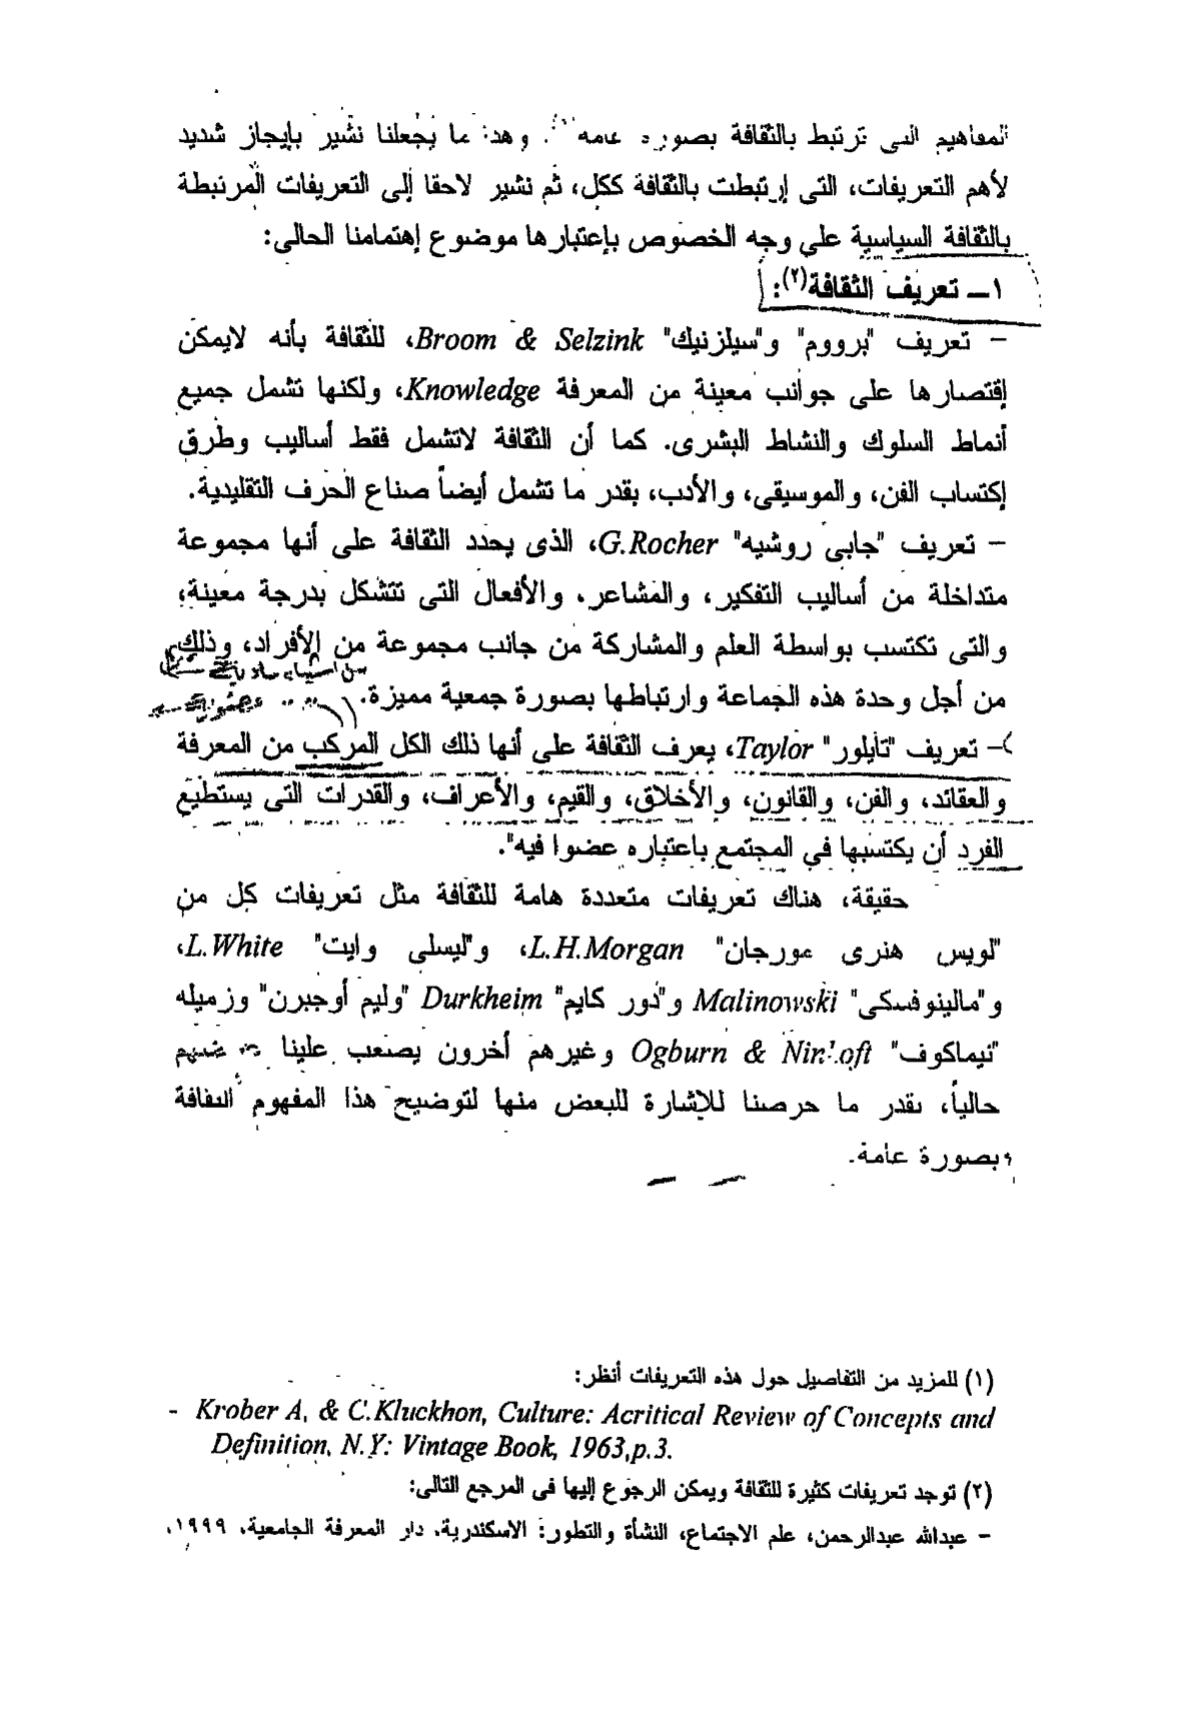 المفاهيم التى ترتبط بالثقافة بصورة عامة(١). وهذا ما يجعلنا نشير بإيجاز شديد
لأهم التعريفات، التى إرتبطت بالثقافة ككل، ثم نشير لاحقا إلى التعريفات المرتبطة
بالثقافة السياسية على وجه الخصوص بإعتبارها موضوع إهتمامنا الحالى:
١ــ تعريف الثقافة(٢):
– تعريف "برووم" و"سيلزنيك" Broom & Selzink، للثقافة بأنه لايمكن
إقتصارها على جوانب معينة من المعرفة Knowledge، ولكنها تشمل جميع
أنماط السلوك والنشاط البشرى. كما أن الثقافة لاتشمل فقط أساليب وطرق
إكتساب الفن، والموسيقى، والأدب، بقدر ما تشمل أيضاً صناع الحرف التقليدية.
– تعريف "جابى روشيه" G.Rocher، الذى يحدد الثقافة على أنها مجموعة
متداخلة من أساليب التفكير، والمشاعر. والأفعال التى تتشكل بدرجة معينة،
والتى تكتسب بواسطة العلم والمشاركة من جانب مجموعة من الأفراد، وذلك
من أشياء مادية
من أجل وحدة هذه الجماعة وارتباطها بصورة جمعية مميزة.
– تعريف "تايلور" Taylor، يعرف الثقافة على أنها ذلك الكل المركب من المعرفة
والعقائد، والفن، والقانون، والأخلاق، والقيم، والأعراف، والقدرات التى يستطيع
الفرد أن يكتسبها في المجتمع باعتباره عضوا فيه".
حقيقة، هناك تعريفات متعددة هامة للثقافة مثل تعريفات كل من
"لويس هنرى مورجان" L.H.Morgan، و"ليسلى وايت" L.White،
و"مالينوفسكى" Malinowski و"دور كايم" Durkheim "وليم أوجبرن" وزميله
"نيماكوف" Ogburn & Nimkoft وغيرهم أخرون يصعب علينا
حالياً، بقدر ما حرصنا للإشارة للبعض منها لتوضيح هذا المفهوم الثقافة
بصورة عامة.
(١) للمزيد من التفاصيل حول هذه التعريفات أنظر:
- Krober A, & C.Kluckhon, Culture: Acritical Review of Concepts and
Definition, N.Y: Vintage Book, 1963,p.3.
(٢) توجد تعريفات كثيرة للثقافة ويمكن الرجوع إليها فى المرجع التالى:
– عبدالله عبدالرحمن، علم الاجتماع، النشأة والتطور: الاسكندرية. دار المعرفة الجامعية، ١٩٩٩،